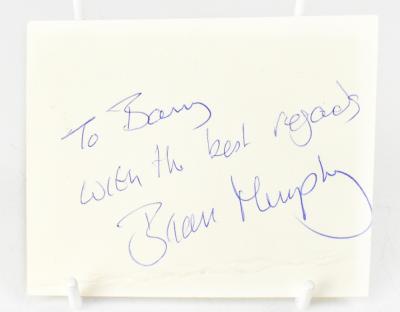 To Barry
with the best regards
Brian Murphy